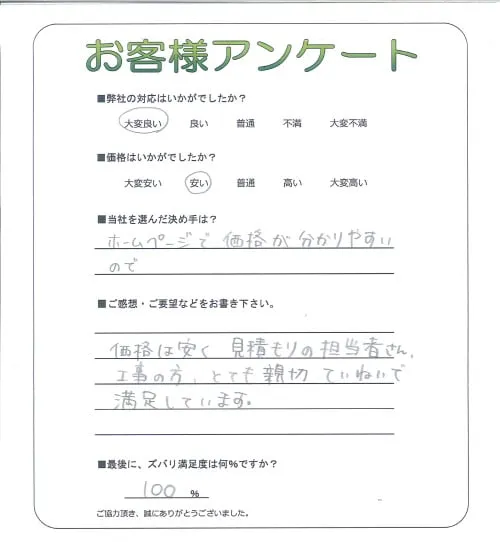 お客様アンケート
■弊社の対応はいかがでしたか?
大変良い 良い 普通 不満 大変不満
■価格はいかがでしたか?
大変安い 安い 普通 高い 大変高い
■当社を選んだ決め手は?
ホームページで価格が分かりやすい
ので
■ご感想・ご要望などをお書き下さい。
価格は安く 見積もりの担当者さん、
工事の方、とても親切ていねいで
満足しています。
■最後に、ズバリ満足度は何%ですか?
100 %
ご協力頂き、誠にありがとうございました。